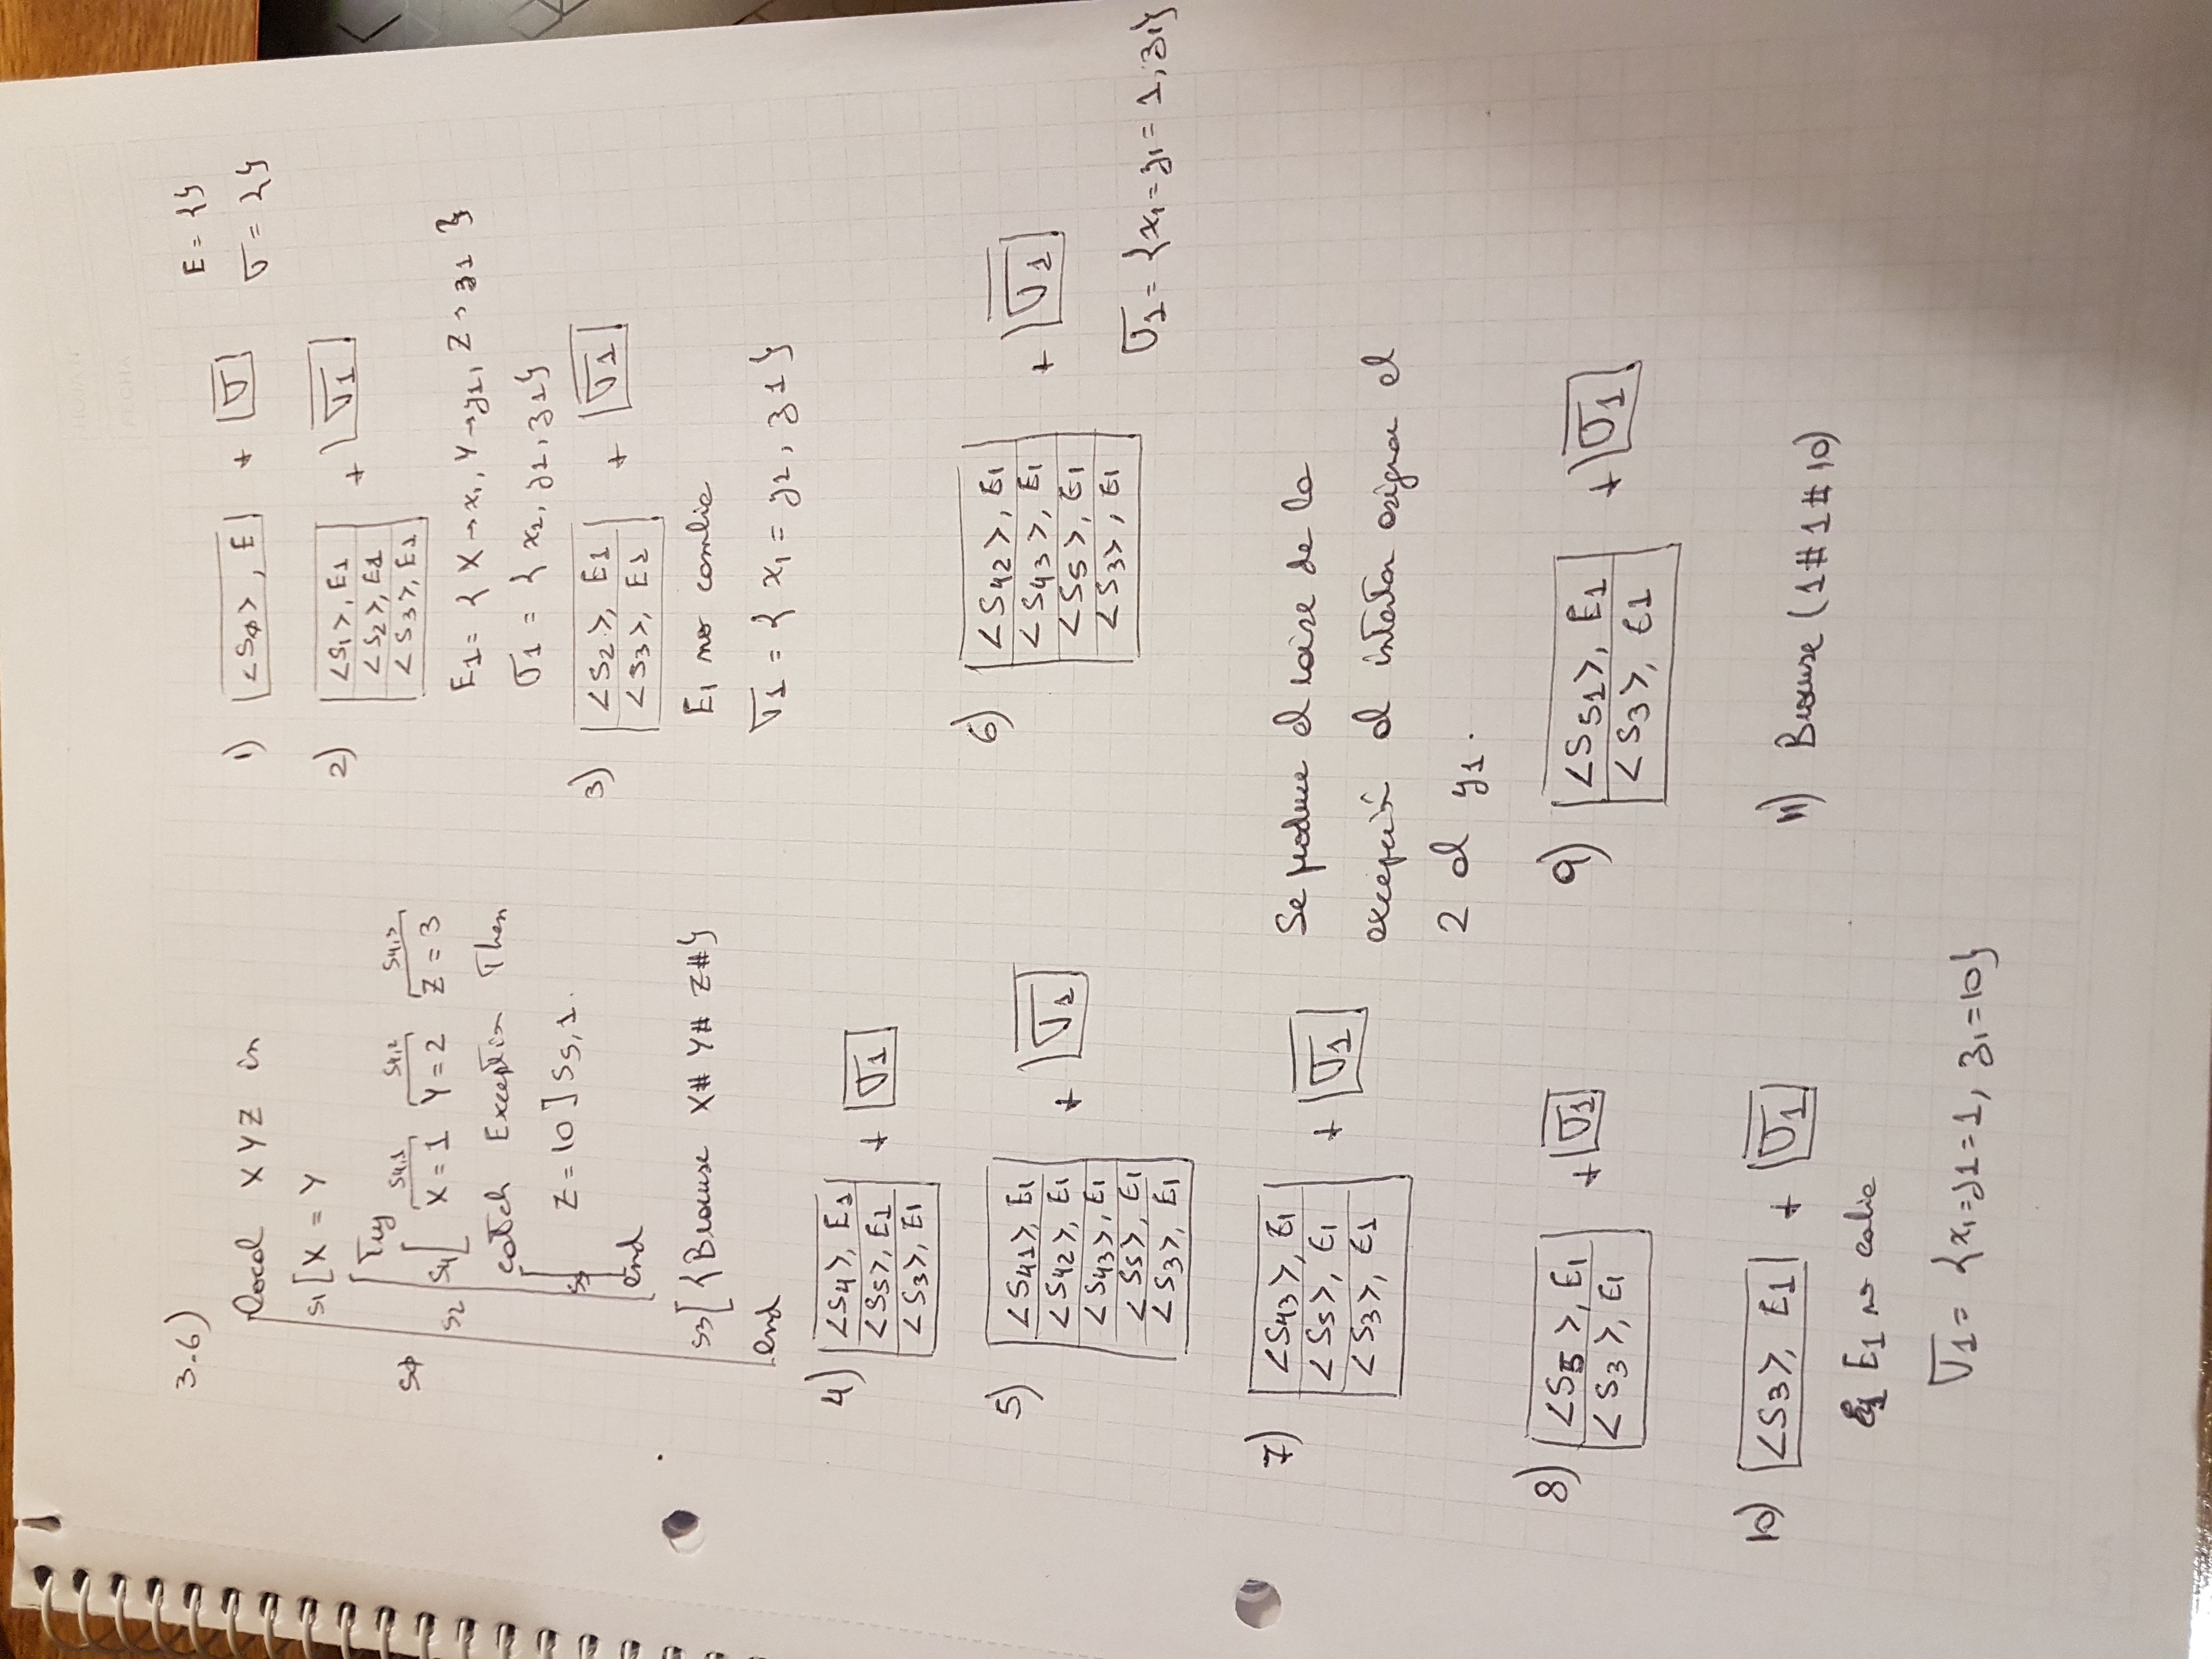 HOJA Nº
FECHA
3.6)
local X Y Z in
S1 [ X = Y
Try
S4,1 S4,2 S4,3
S4 [ X = 1 Y = 2 Z = 3
SΦ
S2
catch Exception Then
Z = 10 ] S5,1.
S5
end
S3 [ {Browse X# Y# Z#}
end
1) <SΦ>, E + σ
E = {}
σ = {}
2) <S1>, E1 + σ1
<S2>, E1
<S3>, E1
E1 = { X→x1, Y→y1, Z→z1 }
σ1 = { x1, y1, z1 }
3) <S2>, E1 + σ1
<S3>, E1
E1 no cambia
σ1 = { x1 = y1, z1 }
4) <S4>, E1 + σ1
<S5>, E1
<S3>, E1
5) <S41>, E1 + σ1
<S42>, E1
<S43>, E1
<S5>, E1
<S3>, E1
6) <S42>, E1 + σ1
<S43>, E1
<S5>, E1
<S3>, E1
σ1 = {x1 = y1 = 1, z1}
7) <S43>, E1 + σ1
<S5>, E1
<S3>, E1
Se produce el raise de la
excepción al intentar asignar el
2 al y1.
8) <S5>, E1 + σ1
<S3>, E1
9) <S51>, E1 + σ1
<S3>, E1
10) <S3>, E1 + σ1
E1 no cabia
σ1 = {x1 = y1 = 1, z1 = 10}
11) Browse (1#1#10)
NOTA